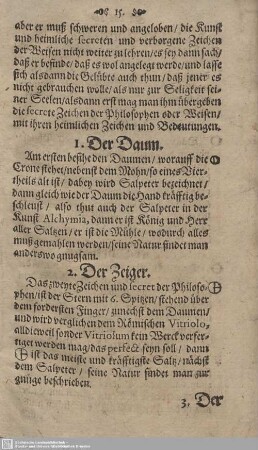 15.
aber er muß schweren und angeloben / die Kunst
und heimliche secreten und verborgene Zeichen
der Weisen nicht weiter zu lehren / es sey dann sach /
daß er befinde / daß es wol angelegt werde / und lasse
sich alsdann die Gelübte auch thun / daß jener es
nicht gebrauchen wolle / als nur zur Seligkeit sei-
ner Seelen / alsdann erst mag man ihm übergeben
die secrete Zeichen der Philosophen oder Weisen /
mit ihren heimlichen Zeichen und Bedeutungen.
1. Der Daum.
Am ersten besihe den Daumen / worauff die
Crone stehet / nebenst dem Mohn / so eines Vier-
theils alt ist / dabey wird Salpeter bezeichnet /
dann gleich wie der Daum die Hand kräfftig be-
schleust / also thut auch der Salpeter in der
Kunst Alchymia, dann er ist König und Herr
aller Salzen / er ist die Mühle / wodurch alles
muß gemahlen werden / seine Natur findet man
anderswo gnugsam.
2. Der Zeiger.
Das zweyte Zeichen und secret der Philoso-
phen / ist der Stern mit 6. Spitzen / stehend über
dem fordersten Finger / zunechst dem Daumen /
und wird verglichen dem Römischen Vitriolo,
alldieweil sonder Vitriolum kein Werck verfer-
tiget werden mag / das perfect seyn soll / dann
ist das meiste und kräfftigste Saltz / nächst
dem Salpeter / seine Natur findet man zur
gnüge beschrieben.
3. Der